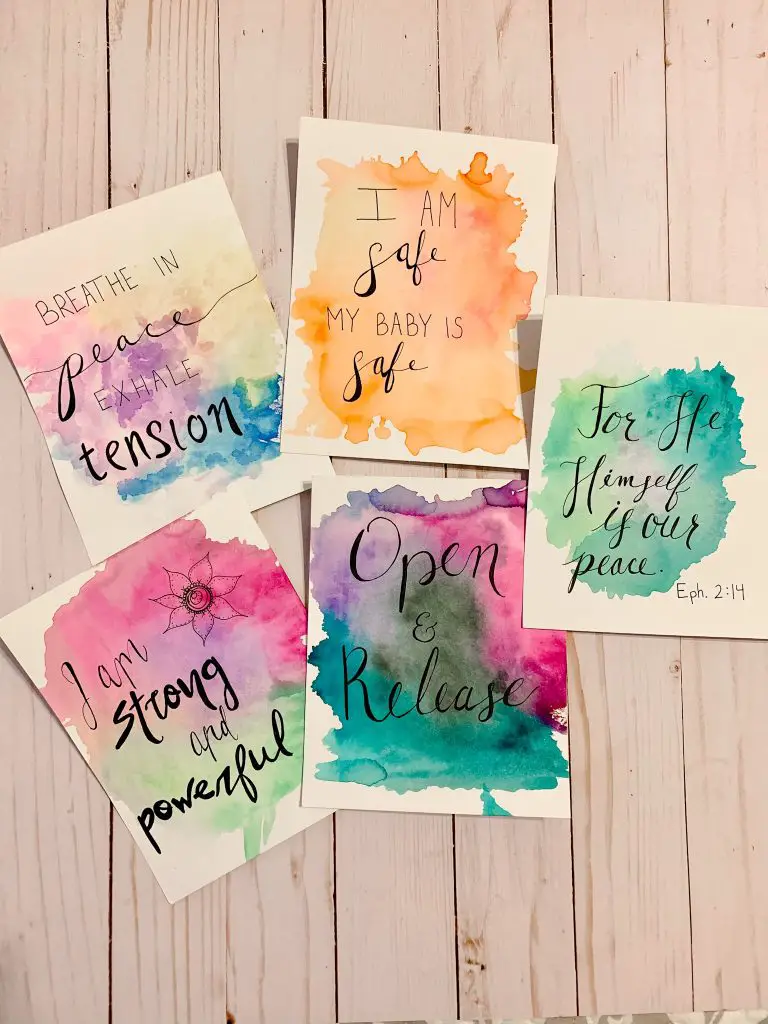 BREATHE IN
peace
EXHALE
tension
I AM
safe
MY BABY IS
safe
For He
Himself
is our
peace.
Eph. 2:14
I am
strong
and
powerful
Open
&
Release